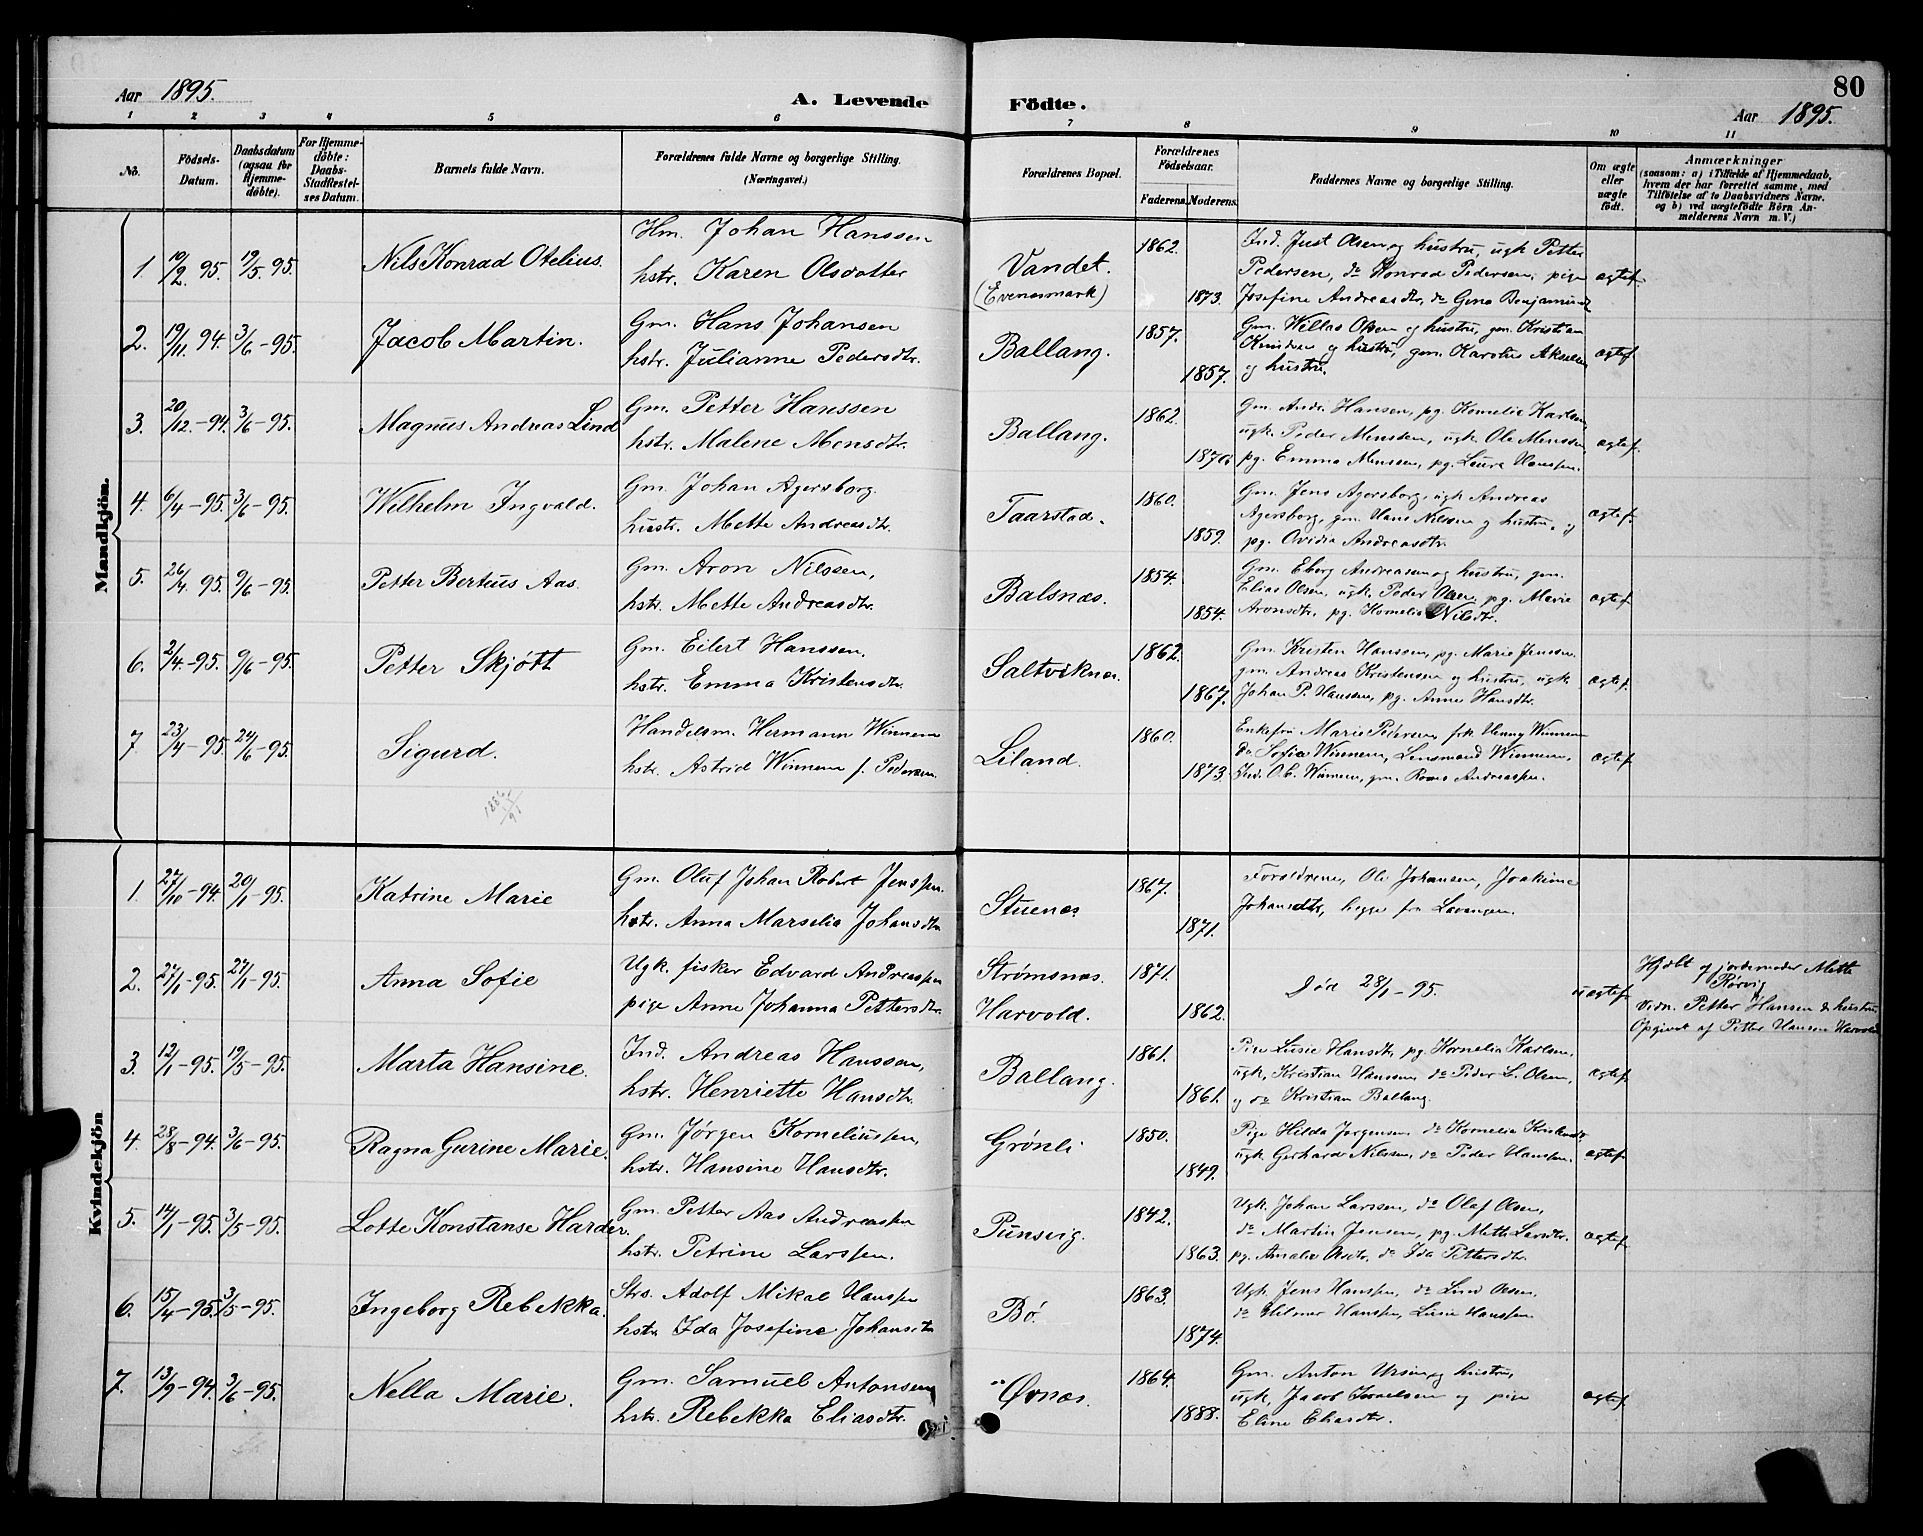 80
Aar 1895.
A. Levende Födte.
Aar 1895.
1 2 3 4 5 6 7 8 9 10 11
No.
Födsels-Datum.
Daabsdatum (ogsaa for Hjemme-döbte).
For Hjemme-döbte: Daabs-Stadfæstel-ses Datum.
Barnets fulde Navn.
Forældrenes fulde Navne og borgerlige Stilling. (Næringsvei.)
Forældrenes Bopæl.
Forældrenes Födselsaar.
Faderens. Moderens.
Faddernes Navne og borgerlige Stilling.
Om ægte eller uægte födt.
Anmærkninger
(saasom: a) i Tilfælde af Hjemmedaab, hvem der har forrettet samme, med Tilföielse af to Daabsvidners Navne, og b) ved uægtefödte Börn An-melderens Navn m. V.)
Mandkjön.
1. 10/2 95. 19/5 95. Nils Konrad Otelius. Hm. Johan Hanssen
hstr. Karen Olsdatter
Vandet. (Evenesmark) 1862. 1873.
Ind. Just Olsen og hustru, ugk. Petter
Pedersen, do Konrad Pedersen, pige
Josefine Andreasdtr, do Gina Benjamins
ægtef.
2. 19/11 94. 3/6-95. Jacob Martin. Gm. Hans Johansen
hstr. Julianne Pedersdtr.
Ballang. 1857. 1857.
Gm. Willas Olsen og hustru, gm. Kristian
Knudsen og hustru, gm. Karolus Akselsen
og hustru.
ægtef
3. 20/12-94. 3/6-95. Magnus Andreas Lind Gm. Petter Hanssen
hstr. Malene Monsdtr.
Ballang. 1862. 1870.
Gm. Andr. Hansen, pg. Kornelia Karlsen,
ugk. Peder Monsen, ugk. Ole Monssen
pg. Emma Monsen, pg. Laura Hanssen.
ægtef.
4. 6/4-95. 3/6-95. Wilhelm Ingvald. Gm. Johan Agersborg.
hustr. Mette Andreasdtr.
Taarstad. 1860. 1859.
Gm. Jens Agersborg, ugk Andreas
Agersborg, gm. Hans Nilssen og hustru, og
pg. Ovidia Andreasdtr.
ægtef.
5. 26/4 95. 9/6-95. Petter Berteus Aas. Gm. Aron Nilssen,
hstr. Mette Andreasdtr.
Balsnæs. 1854. 1854.
Gm. Eberg Andreasen og hustru, gm.
Elias Olsen, ugk. Peder Olsen, pg. Marie
Aronsdtr, pg. Kornelia Nilsdtr.
ægtef
6. 2/4-95. 9/6-95. Petter Skjött Gm. Eilert Hanssen.
hstr. Emma Kristensdtr.
Saltviknes. 1862. 1867.
Gm. Kristen Hanssen, pg. Marie Jenssen
gm. Andreas Kristensen og hustru, ugk.
Johan P. Hansen, pg. Anne Hansdtr.
ægtef.
7. 23/4-95. 24/6-95. Sigurd. Handelsm. Hermann Winnem
hstr. Astrid Winnem f. Pedersen.
Liland. 1860. 1873.
Enkefru Marie Pedersen, frk Henny Winnem
do Sofie Winnem, Lensmand Winnem,
Ind. O.C. Winnem, gm. Andreassen.
ægtef
Kvindekjön
1. 27/10-94. 20/1-95. Katrine Marie Gm. Oluf Johan Robert Jenssen.
hstr. Anna Marselia Johansdtr
Stuenæs 1867. 1871.
Forældrene, Ole Johansen, Joakime
Johansdtr, begge fra Lavangen.
2. 27/1-95. 27/1-95. Anna Sofie Ugk. fisker Edvard Andreassen
pige Anne Johanna Pettersdtr.
Strømsnæs. Harvold. 1871. 1862.
Død 28/1-95.
uægtef
Hjdbt af jordemoder Mette
Rørvig
Vidn. Petter Hansen & hustru
Opgivet af Petter Hansen Harvold
3. 12/1-95. 19/5-95. Marta Hansine. Ind. Andreas Hanssen,
hstr. Henriette Hansdtr.
Ballang. 1861. 1861.
Pige Lusie Hansdtr, pg. Kornelia Karlsen,
ugk, Kristian Hanssen, do Peder L. Olsen,
og do Kristian Ballang.
ægtef.
4. 28/8-94. 3/6-95. Ragna Gurine Marie. Gm. Jörgen Korneliussen,
hstr. Hansine Hansdtr.
Grønli 1850. 1849.
Pige Hilda Jörgensen, do Kornelia
ugk. Gerhard Nilssen, do Peder Hanssen.
ægtef.
5. 14/1-95. 3/5-95. Lotte Konstanse Harder. Gm. Petter Aas Andreassen
hstr. Petrine Larssen.
Pünsvig. 1842. 1863.
Ugk. Johan Larssen, do Olaf Olsen,
do Martin Jensen, pg. Mette Larsdtr.
pg. Amalie Olsdtr. do Ida Pettersdtr.
ægtef
6. 15/4-95. 3/5-95. Ingeborg Rebekka. Strs. Adolf Mikal Hanssen
hstr. Ida Josefine Johansdtr
Bø. 1863. 1874.
Ugk. Jens Hanssen, do Lind Olsen,
do Hilmar Hanssen, Lusie Hanssen.
7. 13/9-94. 3/6-95. Nella Marie. Gm. Samuel Antonsen
hstr. Rebekka Eliasdtr.
Øvnæs. 1864. 1888.
Gm. Anton Ursin og hustru,
ugk, Jacob Israelsen og pige
Eline Eliasdtr.
ægtef